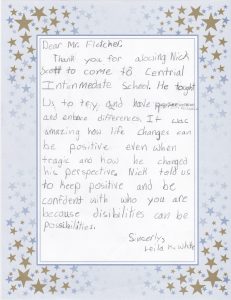 Dear Mr. Fletcher,
Thank you for alowing Nick
Scott to come to Central
Intermediate School. He taught
us to try and have
and embrace differences. It was
amazing how life changes can
be positive even when
tragic and how he changed
his perspective. Nick told us
to keep positive and be
confident with who you are
because disibilities can be
possibilities.
Sincerly,
Leila K. White